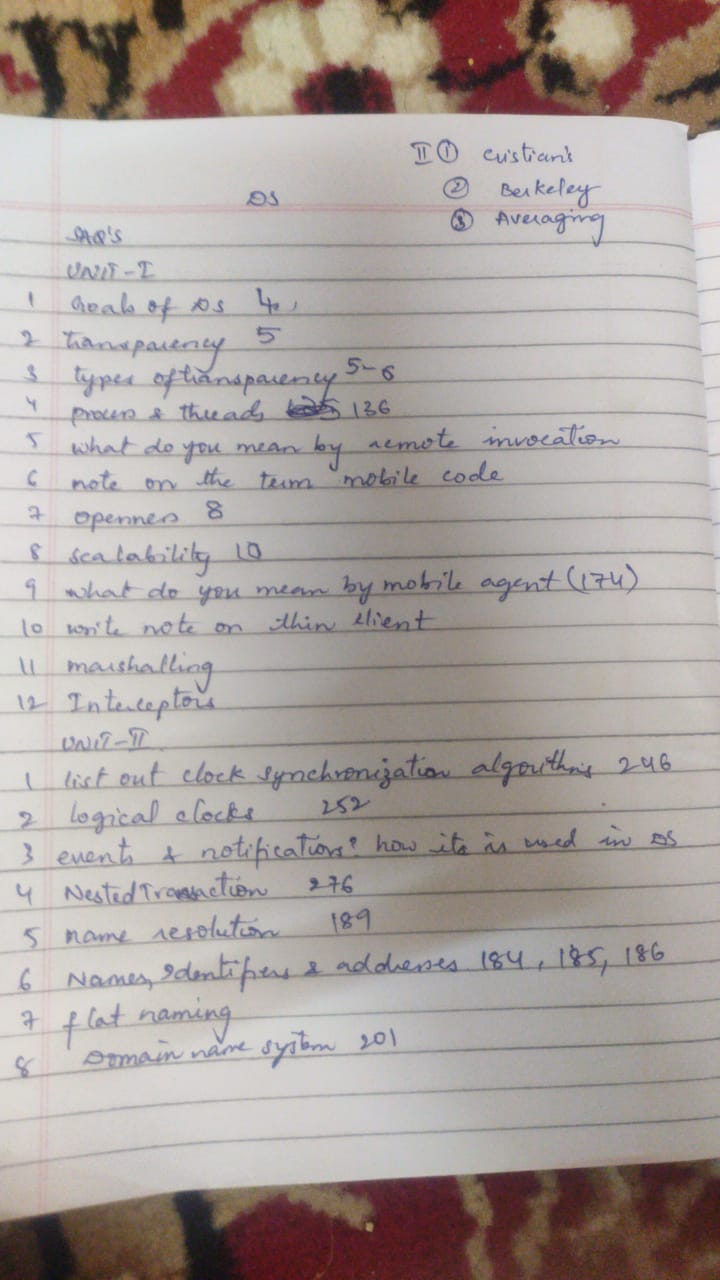 II ① Cristian's
② Berkeley
③ Averaging
DS
SAQ'S
UNIT-I
1 Goals of DS 4
2 transparency 5
3 types of transparency 5-6
4 process & threads 136
5 what do you mean by remote invocation
6 note on the term mobile code
7 openness 8
8 scalability 10
9 what do you mean by mobile agent (174)
10 write note on thin client
11 marshalling
12 Interceptors
UNIT-II
1 list out clock synchronization algorithms 246
2 logical clocks 252
3 events & notifications? how its is used in DS
4 Nested Transaction 276
5 name resolution 189
6 Names, Identifiers & addresses 184, 185, 186
7 flat naming
8 Domain name system 201